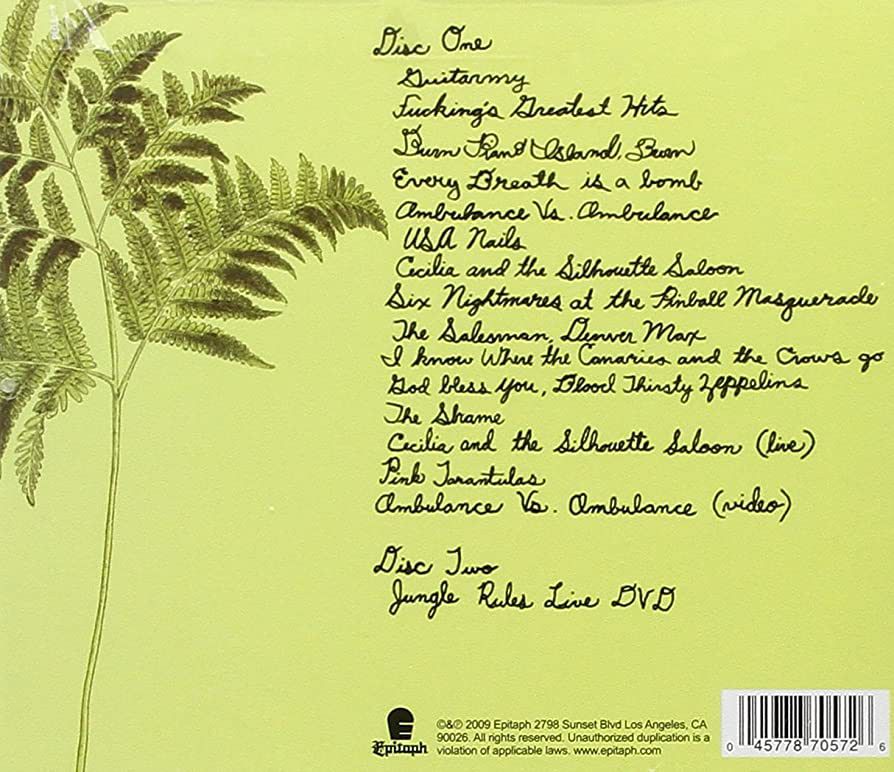 Disc One
Guitarmy
Fucking's Greatest Hits
Burn Piano Island, Burn
Every Breath is a bomb
Ambulance Vs. Ambulance
USA Nails
Cecilia and the Silhouette Saloon
Six Nightmares at the Pinball Masquerade
The Salesman, Denver Max
I know Where the Canaries and the Crows go
God bless You, Blood Thirsty Zeppelins
The Shame
Cecilia and the Silhouette Saloon (live)
Pink Tarantulas
Ambulance Vs. Ambulance (video)
Disc Two
Jungle Rules Live DVD
Epitaph
©&℗ 2009 Epitaph 2798 Sunset Blvd Los Angeles, CA
90026. All rights reserved. Unauthorized duplication is a
violation of applicable laws. www.epitaph.com
0 45778 70572 6